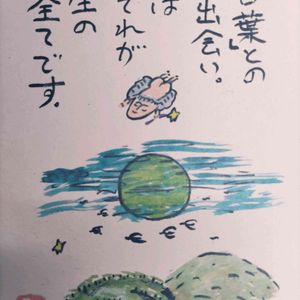 葉」との
出会い。
は
それが
生の
全てです。